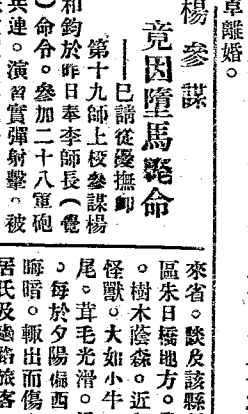 卓離婚。
楊參謀
竟因墮馬斃命
——已請從優撫卹
第十九師上校參謀楊
和鈞於昨日奉李師長（覺
）命令。參加二十八軍砲
兵連。演習實彈射擊。被
來省。談及該縣
區朱日橋地方。
。樹木蔭森。近
怪獸。大如小牛
尾。茸毛光滑。
。每於夕陽偏西
晦暗。輙出而傷
居民及過路旅客